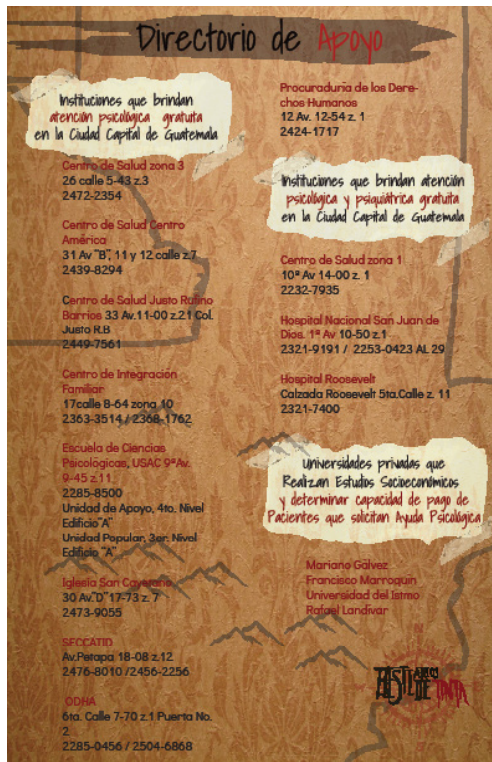 Directorio de Apoyo
Instituciones que brindan
atención psicológica gratuita
en la Ciudad Capital de Guatemala
Centro de Salud zona 3
26 calle 5-43 z.3
2472-2354
Centro de Salud Centro
América
31 Av "B", 11 y 12 calle z.7
2439-8294
Centro de Salud Justo Rufino
Barrios 33 Av.11-00 z.21 Col.
Justo R.B
2449-7561
Centro de Integración
Familiar
17calle 8-64 zona 10
2363-3514 / 2368-1762
Escuela de Ciencias
Psicológicas, USAC 9ªAv.
9-45 z.11
2285-8500
Unidad de Apoyo, 4to. Nivel
Edificio"A"
Unidad Popular, 3er. Nivel
Edificio "A"
Iglesia San Cayetano
30 Av."D"17-73 z. 7
2473-9055
SECCATID
Av.Petapa 18-08 z.12
2476-8010 /2456-2256
ODHA
6ta. Calle 7-70 z.1 Puerta No.
2
2285-0456 / 2504-6868
Procuraduría de los Dere-
chos Humanos
12 Av. 12-54 z. 1
2424-1717
Instituciones que brindan atención
psicológica y psiquiátrica gratuita
en la Ciudad Capital de Guatemala
Centro de Salud zona 1
10ª Av 14-00 z. 1
2232-7935
Hospital Nacional San Juan de
Dios. 1ª Av 10-50 z.1
2321-9191 / 2253-0423 AL 29
Hospital Roosevelt
Calzada Roosevelt 5ta.Calle z. 11
2321-7400
Universidades privadas que
Realizan Estudios Socioeconómicos
y determinar capacidad de pago de
Pacientes que solicitan Ayuda Psicológica
Mariano Gálvez
Francisco Marroquín
Universidad del Istmo
Rafael Landívar